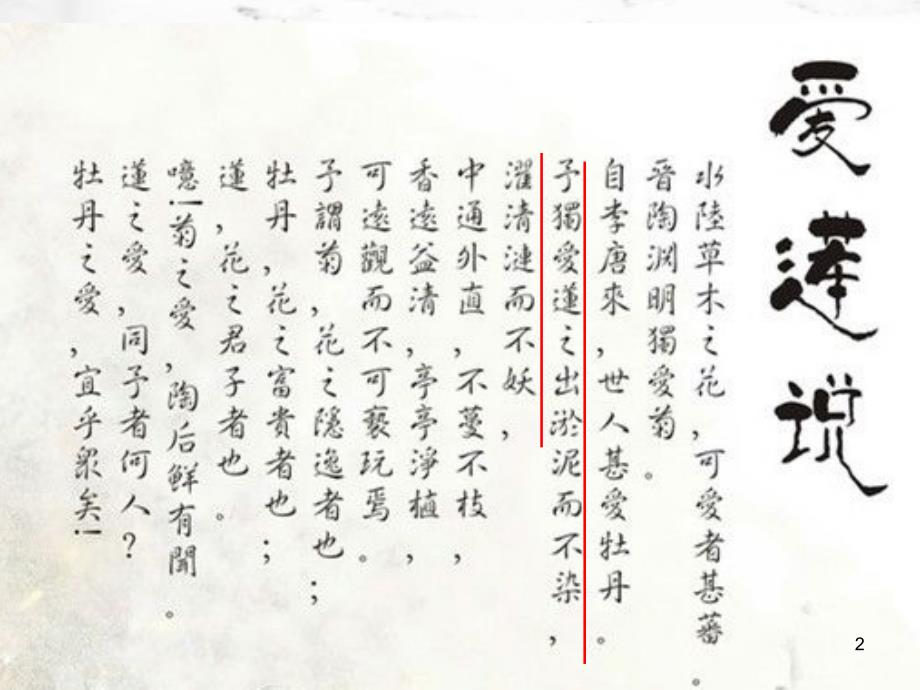 爱莲说
水陸草木之花,可愛者甚蕃。
晉陶淵明獨愛菊。
自李唐來,世人甚愛牡丹。
予獨愛蓮之出淤泥而不染,
濯清漣而不妖,
中通外直,不蔓不枝,
香遠益清,亭亭淨植,
可遠觀而不可褻玩焉。
予謂菊,花之隱逸者也;
牡丹,花之富貴者也;
蓮,花之君子者也。
噫!菊之愛,陶后鮮有聞。
蓮之愛,同予者何人?
牡丹之愛,宜乎衆矣!
2